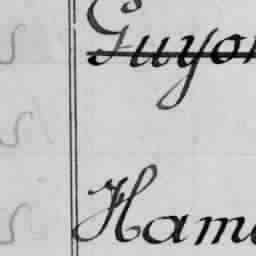 Guyon
Hame